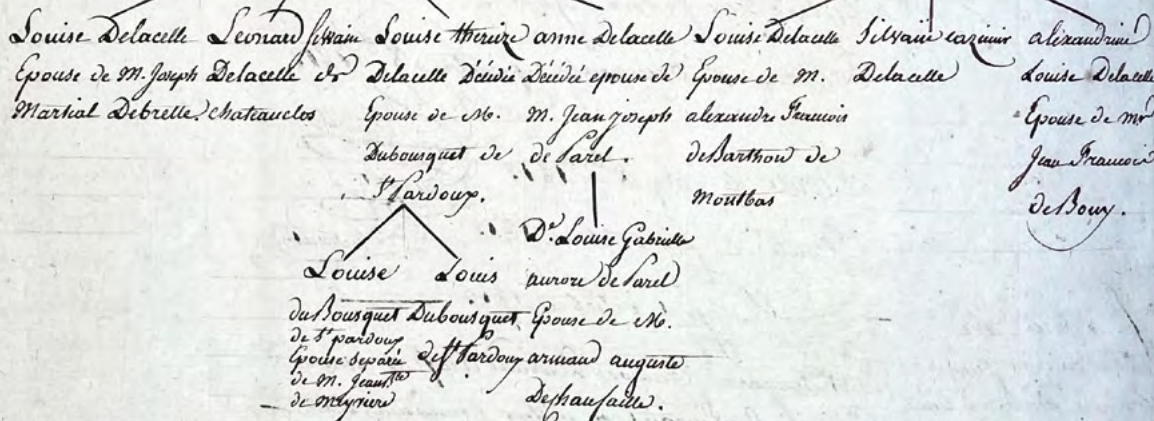 Louise Delacelle
Epouse de M. Joseph
Martial Debrette
Leonard Silvain
Delacelle de
chateauclos
Louise therèze
Delacelle Décédée
Epouse de M.
Dubousquet de
St Pardoux.
anne Delacelle
Décédée epouse de
M. Jean joseph
de Parel.
Louise Delacelle
Epouse de M.
alexandre Francois
de Barthon de
Montbas
Silvain cazimir
Delacelle
alexandrine
Louise Delacelle
Epouse de mr
Jean Francois
de Bouy.
Louise
du Bousquet
de St pardoux
Epouse separée
de M. Jean Bte
de meyviere
Louis
Dubousquet
de St Pardoux
De. Louise Gabrielle
aurore de Parel
Epouse de M.
armand auguste
Deschaufaille.